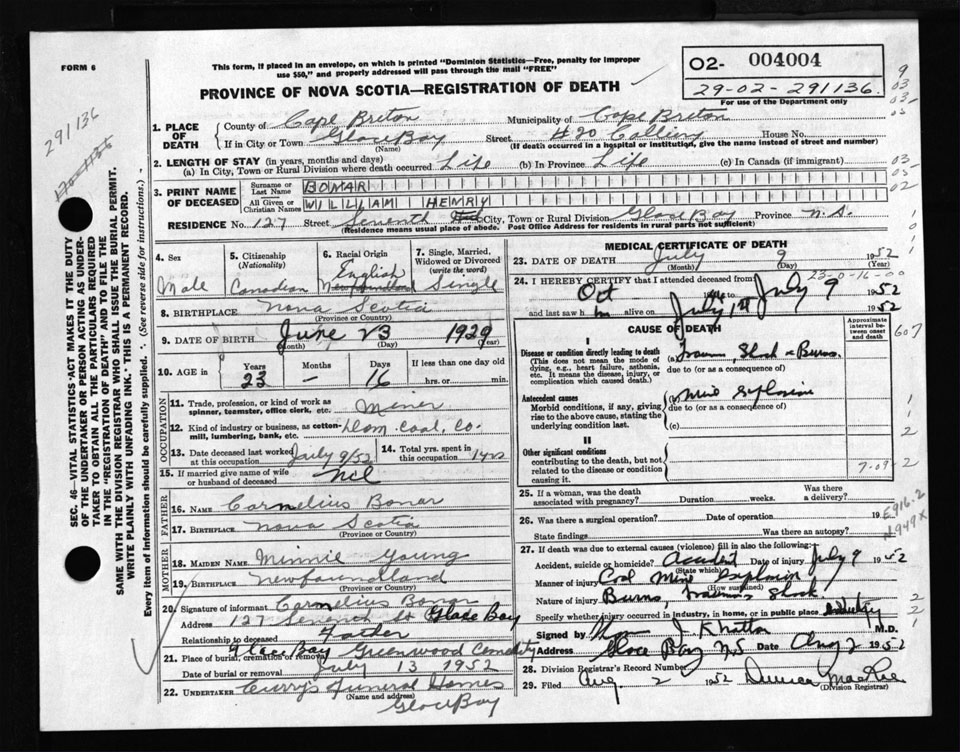 FORM 6
This form, if placed in an envelope, on which is printed "Dominion Statistics—Free, penalty for improper
use $50," and properly addressed will pass through the mail "FREE"
PROVINCE OF NOVA SCOTIA—REGISTRATION OF DEATH
O2- 004004
29-02-291136
For use of the Department only
291136
1. PLACE OF DEATH
County of Cape Breton Municipality of Cape Breton
If in City or Town Glace Bay Street #20 Colliery House No.
(Name) (If death occurred in a hospital or institution, give the name instead of street and number)
2. LENGTH OF STAY (in years, months and days)
(a) In City, Town or Rural Division where death occurred Life (b) In Province Life (c) In Canada (if immigrant)
3. PRINT NAME OF DECEASED
Surname or Last Name BONAR
All Given or Christian Names WILLIAM HENRY
RESIDENCE No. 127 Street Seventh City, Town or Rural Division Glace Bay Province N.S.
(Residence means usual place of abode. Post Office Address for residents in rural parts not sufficient)
4. Sex Male
5. Citizenship (Nationality) Canadian
6. Racial Origin English Newfoundland
7. Single, Married, Widowed or Divorced (write the word) Single
8. BIRTHPLACE Nova Scotia
(Province or Country)
9. DATE OF BIRTH June 23 1929
(Month) (Day) (Year)
10. AGE in Years 23 Months — Days 16 If less than one day old hrs. or min.
OCCUPATION
11. Trade, profession, or kind of work as spinner, teamster, office clerk, etc. Miner
12. Kind of industry or business, as cotton-mill, lumbering, bank, etc. Dom. Coal, Co.
13. Date deceased last worked at this occupation July 9/52
14. Total yrs. spent in this occupation 1 yrs
15. If married give name of wife or husband of deceased nil
FATHER
16. Name Cornelius Bonar
17. Birthplace Nova Scotia
(Province or Country)
MOTHER
18. Maiden Name Minnie Young
19. Birthplace Newfoundland
(Province or Country)
20. Signature of informant Cornelius Bonar
Address 127 Seventh St Glace Bay
Relationship to deceased Father
21. Place of burial, cremation or removal Glace Bay Greenwood Cemetery
Date of burial or removal July 13 1952
22. UNDERTAKER Curry's Funeral Homes
(Name and address)
Glace Bay
MEDICAL CERTIFICATE OF DEATH
23. DATE OF DEATH July 9 1952
(Month) (Day) (Year)
23-0-16-00
24. I HEREBY CERTIFY that I attended deceased from
Oct to July 9 1952
and last saw h im alive on July 1st 1952
CAUSE OF DEATH
Approximate interval between onset and death
I
Disease or condition directly leading to death
(This does not mean the mode of dying, e.g., heart failure, asthenia, etc. It means the disease, injury, or complication which caused death.)
(a) Trauma, Shock & Burns.
due to (or as a consequence of)
Antecedent causes
Morbid conditions, if any, giving rise to the above cause, stating the underlying condition last.
(b) Mine Explosion
due to (or as a consequence of)
(c)
II
Other significant conditions
contributing to the death, but not related to the disease or condition causing it.
607
7-09-2
25. If a woman, was the death associated with pregnancy? Duration weeks. Was there a delivery?
26. Was there a surgical operation? Date of operation
State findings Was there an autopsy?
E916.2
N949X
27. If death was due to external causes (violence) fill in also the following:
Accident, suicide or homicide? Accident Date of injury July 9 1952
(State which)
Manner of injury Coal Mine Explosion
(How sustained)
Nature of injury Burns, Trauma, Shock
Specify whether injury occurred in industry, in home, or in public place Industry
Signed by M.D.
Address Glace Bay N.S Date Aug 2 1952
28. Division Registrar's Record Number
29. Filed Aug 2 1952 Duncan MacRae
(Division Registrar)
SEC. 46 VITAL STATISTICS ACT MAKES IT THE DUTY
OF THE UNDERTAKER OR PERSON ACTING AS UNDER-
TAKER TO OBTAIN ALL THE PARTICULARS REQUIRED
IN THE "REGISTRATION OF DEATH" AND TO FILE THE
SAME WITH THE DIVISION REGISTRAR WHO SHALL ISSUE THE BURIAL PERMIT.
WRITE PLAINLY WITH UNFADING INK. THIS IS A PERMANENT RECORD.
Every item of information should be carefully supplied. (See reverse side for instructions.)